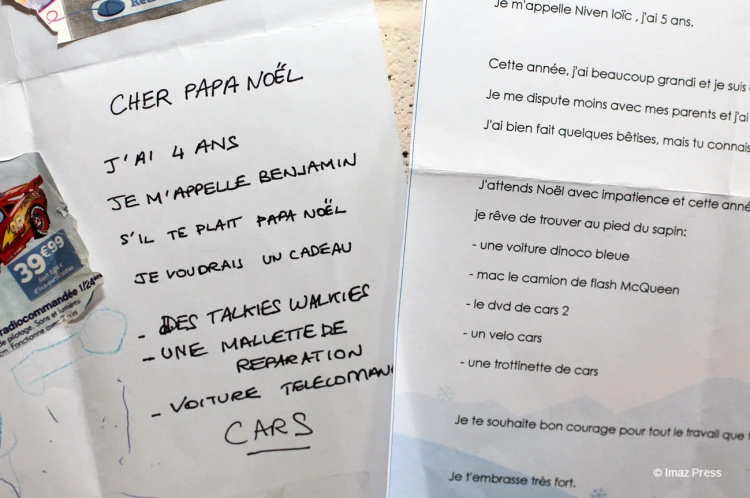 CHER PAPA NOËL
J'AI 4 ANS
JE M'APPELLE BENJAMIN
S'IL TE PLAIT PAPA NOËL
JE VOUDRAIS UN CADEAU
- DES TALKIES WALKIES
- UNE MALLETTE DE
REPARATION
- VOITURE TELECOMAN
CARS
39€99
radiocommandée 1/24
de pilotage. Sons et lumières.
cm. Fonctionne avec
Je m'appelle Niven loïc , j'ai 5 ans.
Cette année, j'ai beaucoup grandi et je suis
Je me dispute moins avec mes parents et j'ai
J'ai bien fait quelques bêtises, mais tu connais
J'attends Noël avec impatience et cette anné
je rêve de trouver au pied du sapin:
- une voiture dinoco bleue
- mac le camion de flash McQueen
- le dvd de cars 2
- un velo cars
- une trottinette de cars
Je te souhaite bon courage pour tout le travail que
Je t'embrasse très fort.
© Imaz Press